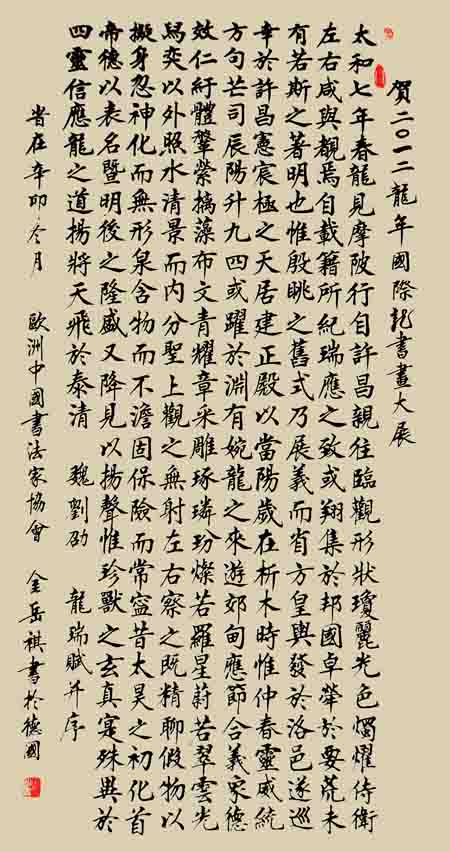 賀二〇一二龍年國際龍書畫大展
太和七年春龍見摩陂行自許昌親往臨觀形狀瓊麗光色燭耀侍衛
左右咸與覩焉自載籍所紀瑞應之致或翔集於邦國卓犖於要荒未
有若斯之著明也惟殷眺之舊式乃展義而省方皇輿發於洛邑遂巡
幸於許昌憲宸極之天居建正殿以當陽歲在析木時惟仲春靈威統
方句芒司辰陽升九四或躍於淵有婉龍之來遊郊甸應節合義象德
效仁紆體鞶縈摛藻布文青耀章采雕琢璘玢燦若羅星蔚若翠雲光
舄奕以外照水清景而內分聖上觀之無射左右察之既精聊假物以
擬身忍神化而無形泉含物而不澹固保險而常寍昔太昊之初化首
帝德以表名暨明後之隆盛又降見以揚聲惟珍獸之玄真寔殊異於
四靈信應龍之道揚將天飛於泰清 魏劉劭 龍瑞賦并序
旹在辛卯月 歐洲中國書法家協會 金岳祺書於德國